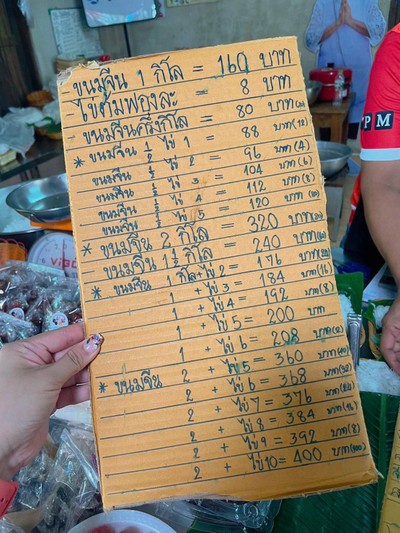 ขนมจีน 1 กิโล = 160 บาท
ไข่ต้มฟองละ = 8 บาท
- ขนมจีนครึ่งกิโล = 80 บาท(20)
* ขนมจีน ½ ไข่ 1 = 88 บาท(12)
ขนมจีน ½ ไข่ 2 = 96 บาท(4)
ขนมจีน ½ ไข่ 3 = 104 บาท(6)
ขนมจีน ½ ไข่ 4 = 112 บาท(8)
ขนมจีน ½ ไข่ 5 = 120 บาท
* ขนมจีน 2 กิโล = 320 บาท
- ขนมจีน 1½ กิโล = 240 บาท
* ขนมจีน 1 กิโล+ไข่ 2 = 176 บาท
1 + ไข่ 3 = 184 บาท(16)
1 + ไข่ 4 = 192 บาท(8)
1 + ไข่ 5 = 200 บาท
1 + ไข่ 6 = 208 บาท
* ขนมจีน 2 + ไข่ 5 = 360 บาท(40)
2 + ไข่ 6 = 368 บาท(32)
2 + ไข่ 7 = 376 บาท(24)
2 + ไข่ 8 = 384 บาท(16)
2 + ไข่ 9 = 392 บาท(8)
2 + ไข่ 10 = 400 บาท(100)
PM